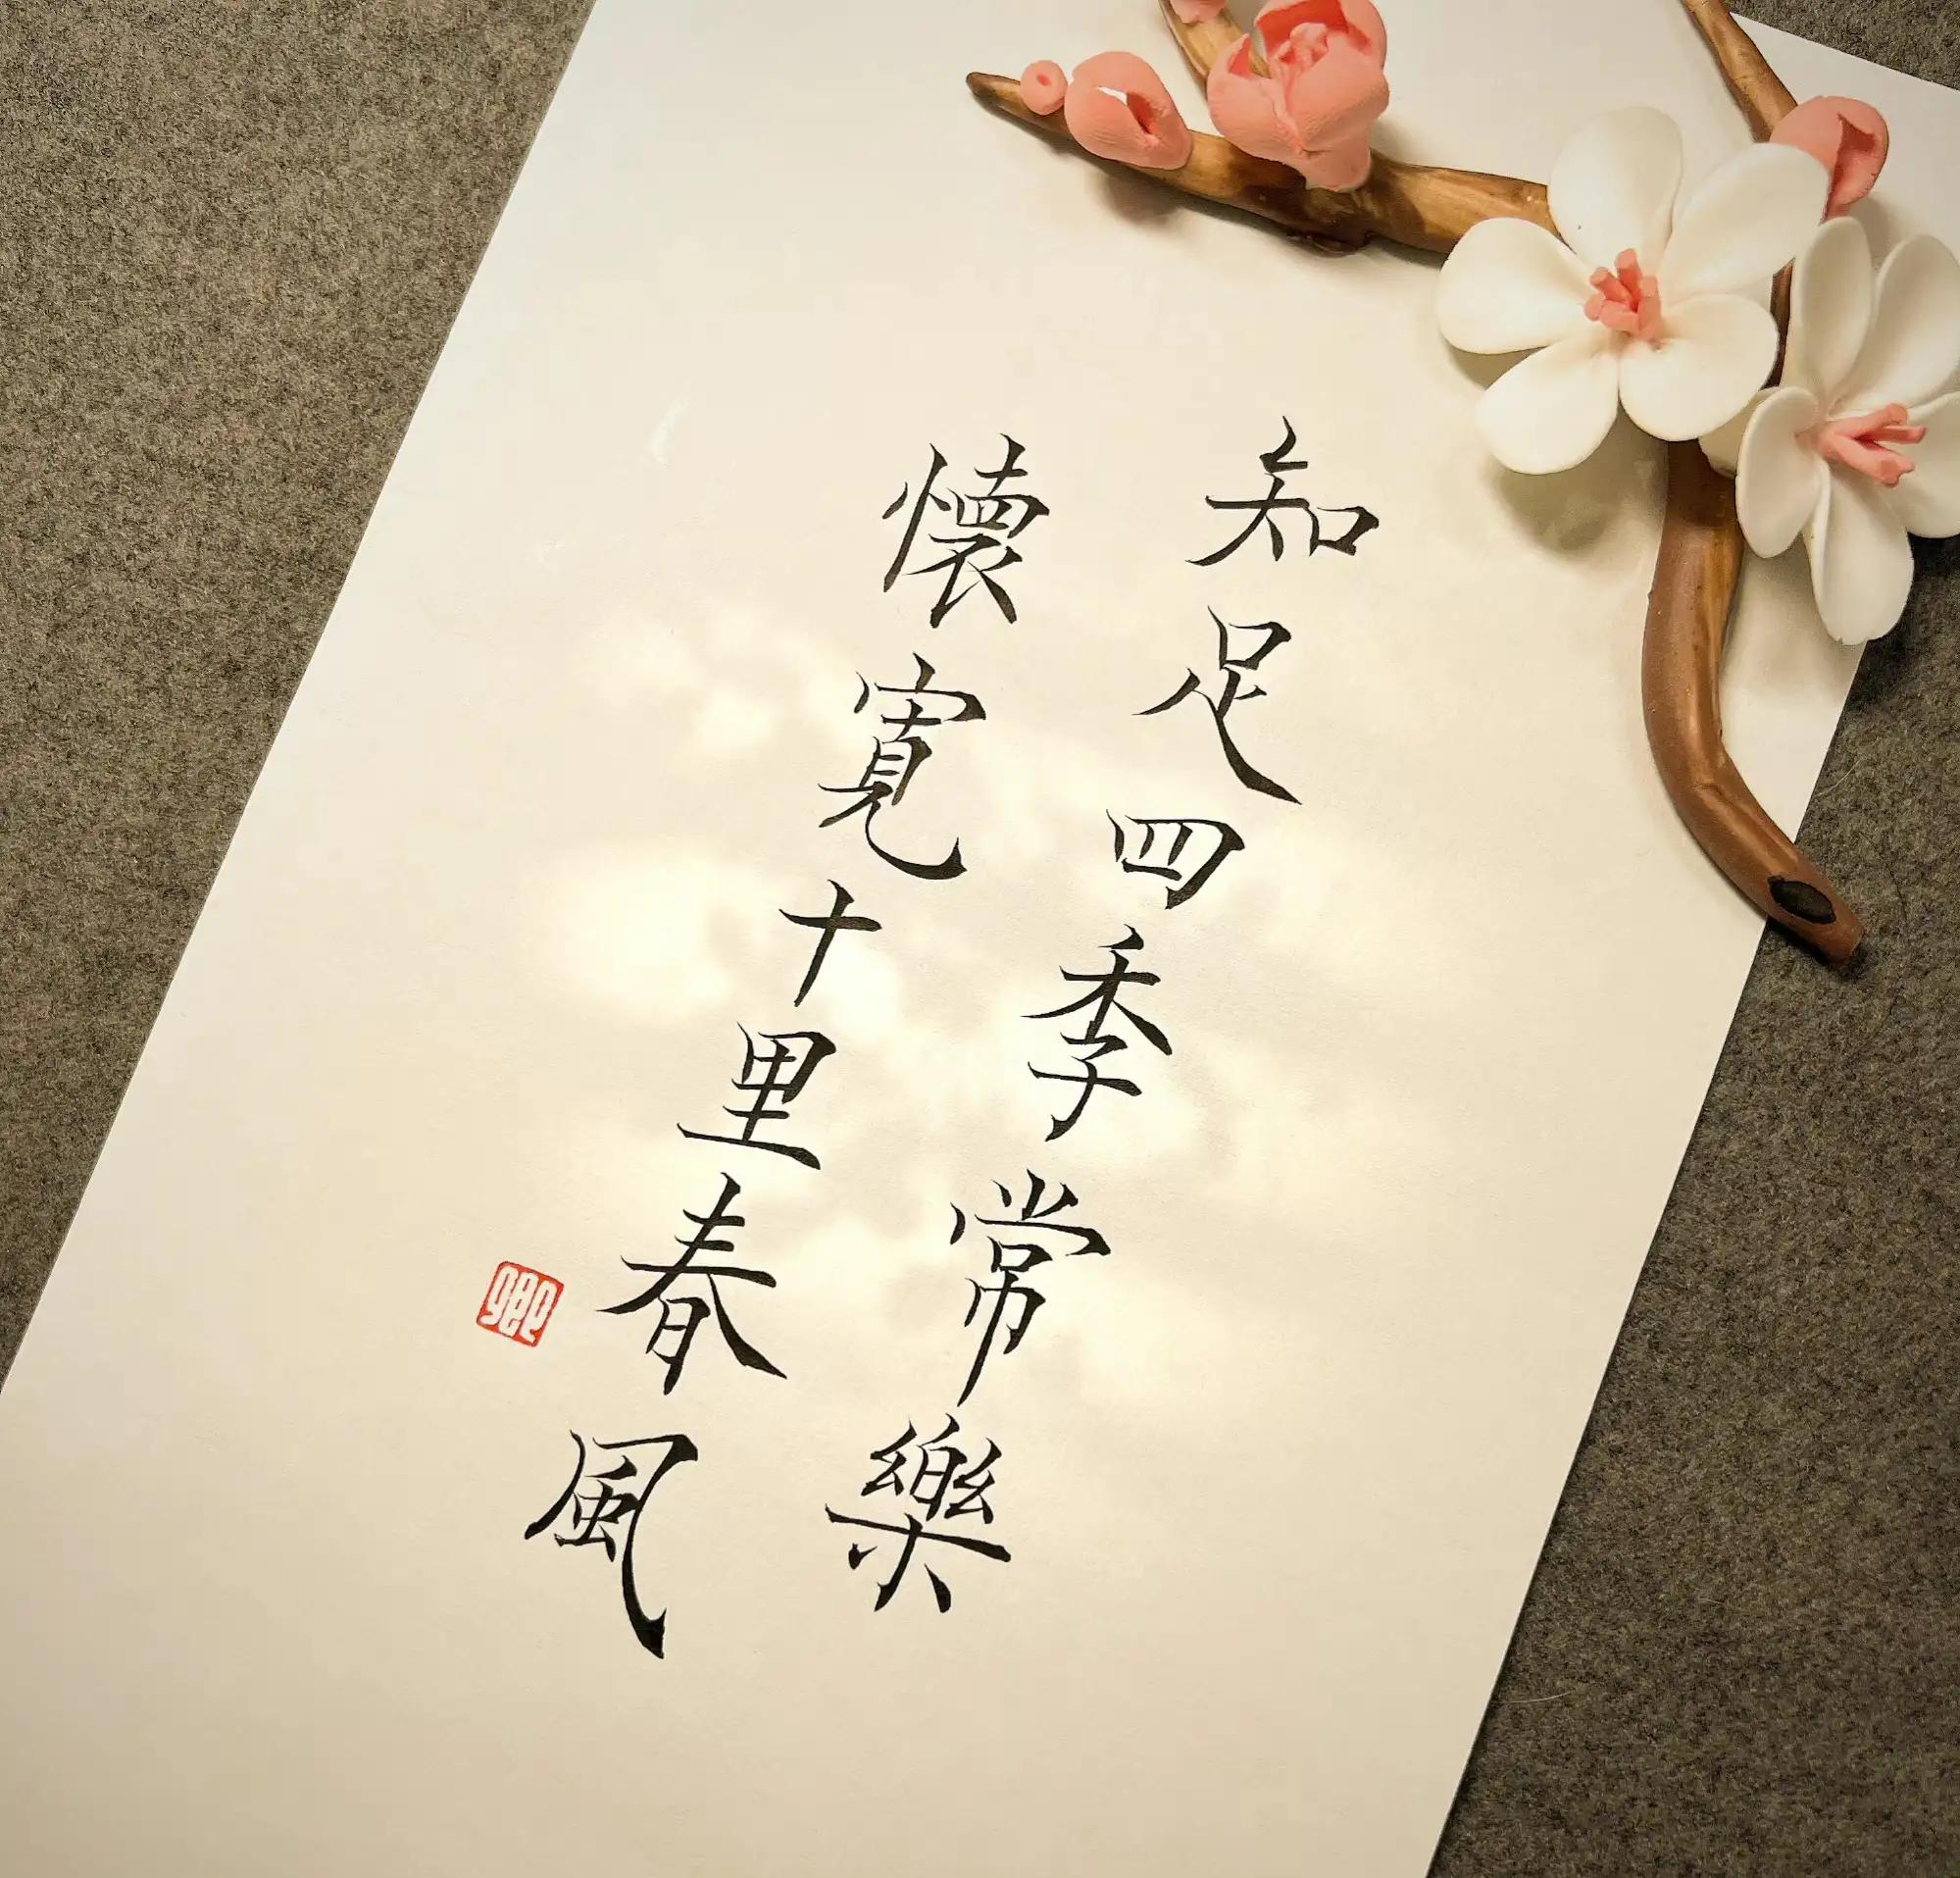 知足四季常樂
懷寬十里春風